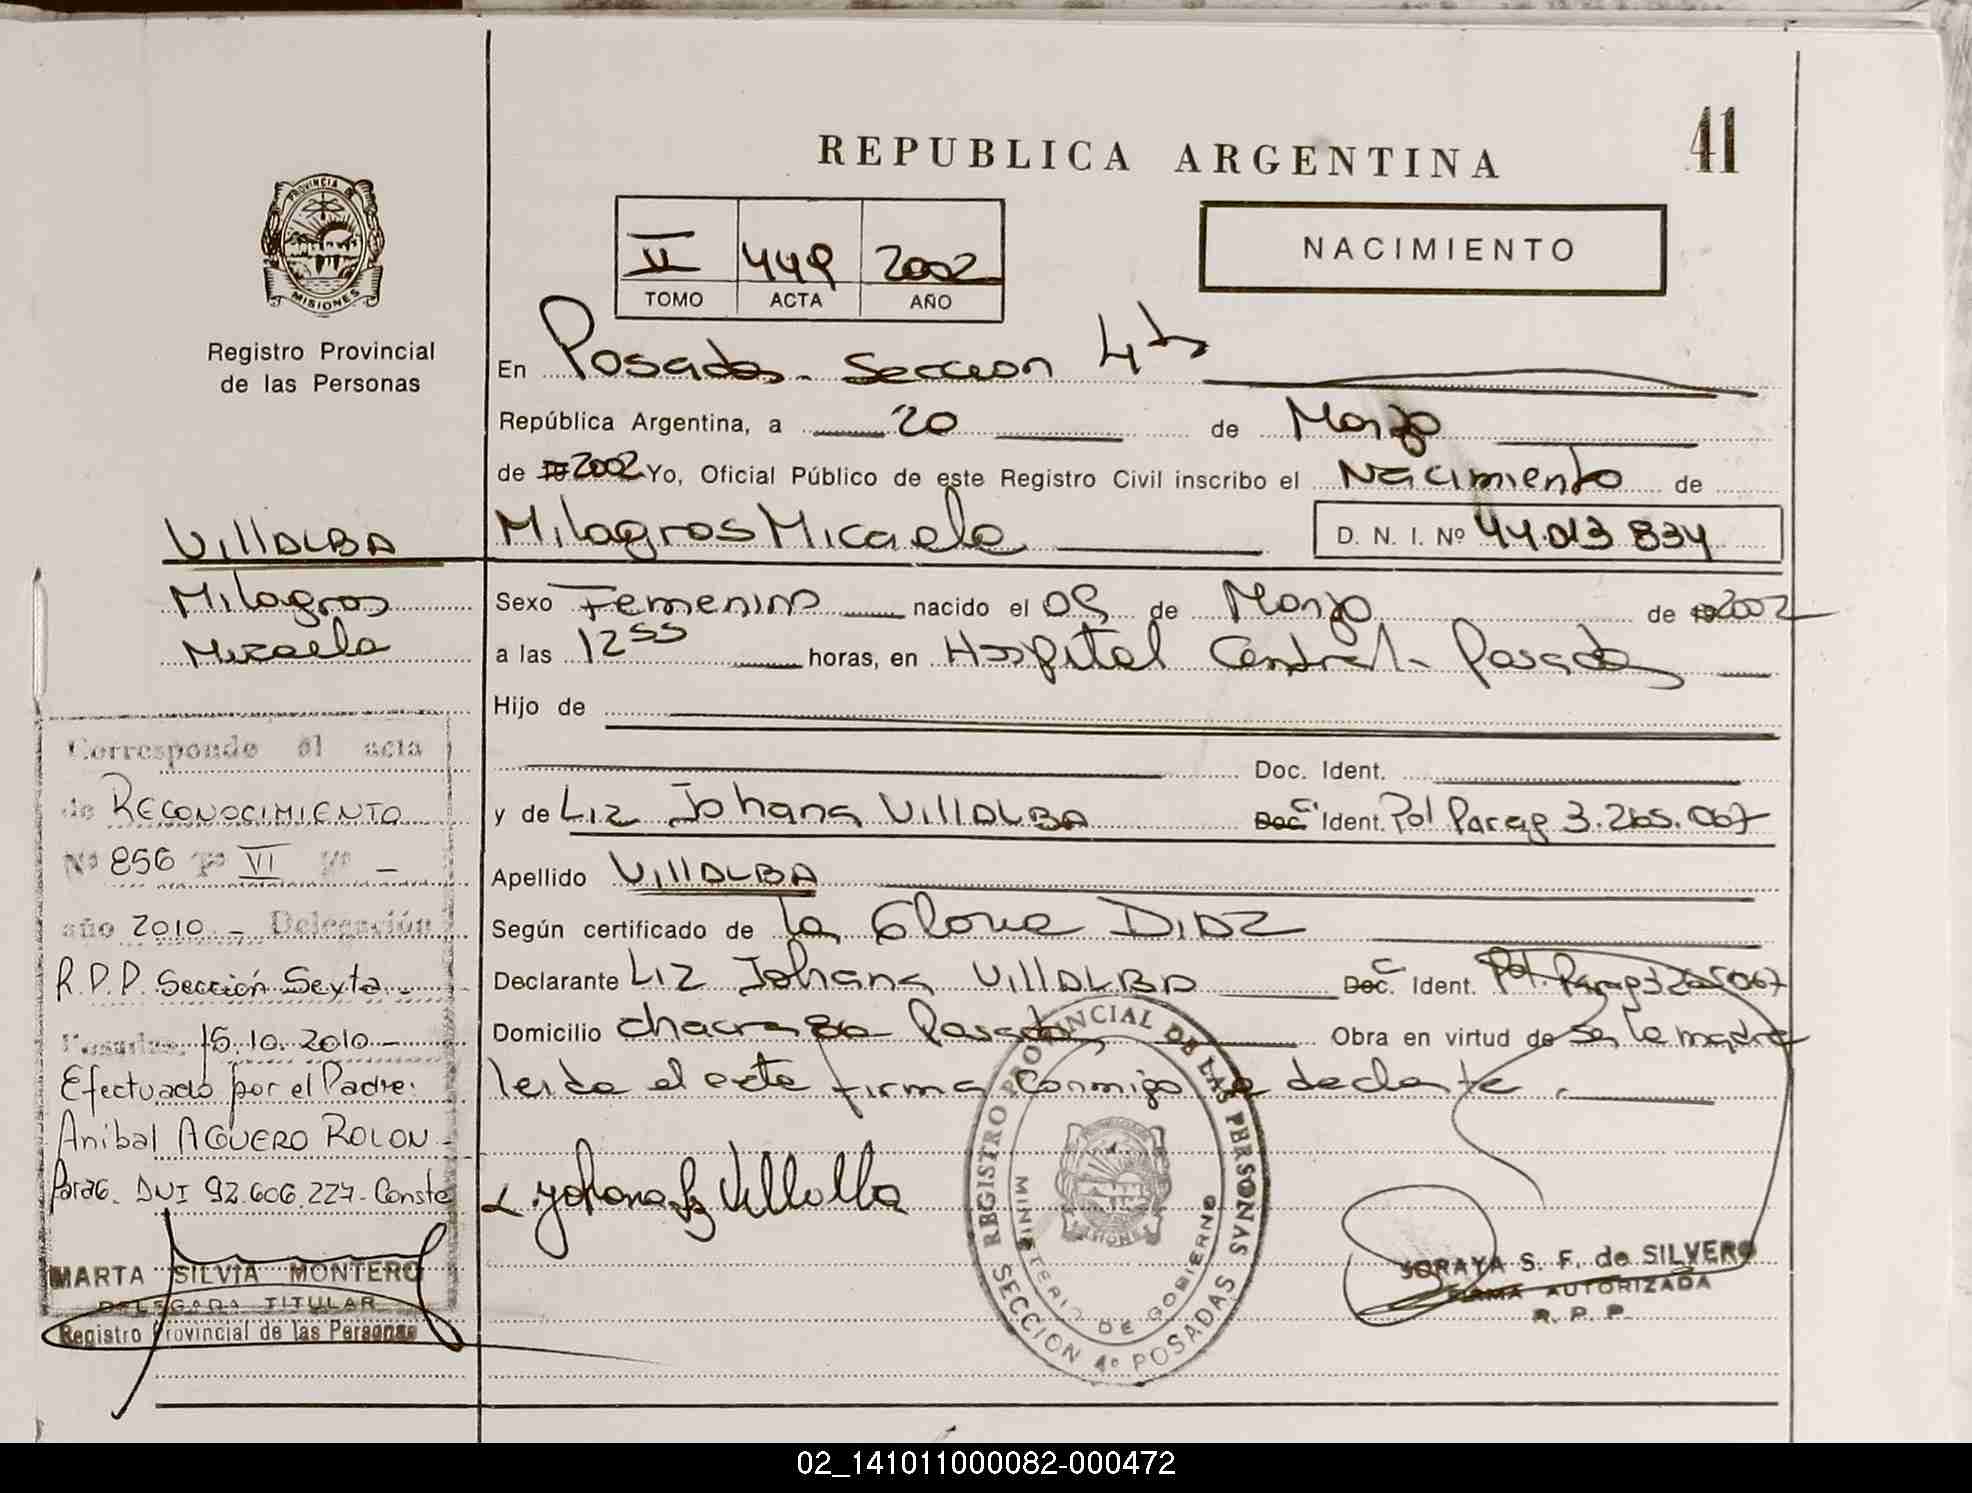 REPUBLICA ARGENTINA
41
PROVINCIA DE
MISIONES
Registro Provincial
de las Personas
II 449 2002
TOMO ACTA AÑO
NACIMIENTO
En Posadas - Seccion 4ta
República Argentina, a 20 de Marzo
de 2002 Yo, Oficial Público de este Registro Civil inscribo el Nacimiento de
Milagros Micaela D. N. I. Nº 44.013.834
Sexo Femenino nacido el 09 de Marzo de 2002
a las 12 55 horas, en Hospital Central - Posadas
Hijo de
Doc. Ident.
y de Liz Johana VIllALBA C. Ident. Pol Parag 3.265.067
Apellido VIllALBA
Según certificado de la Gloria DIAZ
Declarante LIZ Johana VIllALBA C. Ident. Pol. Parag 3265067
Domicilio chacra Posadas Obra en virtud de ser la madre
leida el acta firma conmigo la declarante.
VIllALBA
Milagros
Micaela
Corresponde al acta
de RECONOCIMIENTO
Nº 856 Tº VI Fº -
año 2010 - Delegación
R.P.P. Sección Sexta -
Posadas, 15.10.2010 -
Efectuado por el Padre:
Anibal AGUERO ROLON -
Parag. DNI 92.606.227 - Conste
MARTA SILVIA MONTERO
DELEGADA TITULAR
Registro Provincial de las Personas
REGISTRO PROVINCIAL DE LAS PERSONAS
MINISTERIO DE GOBIERNO
SECCION 4º POSADAS
MISIONES
SORAYA S. F. de SILVERO
FIRMA AUTORIZADA
R. P. P.
02_141011000082-000472